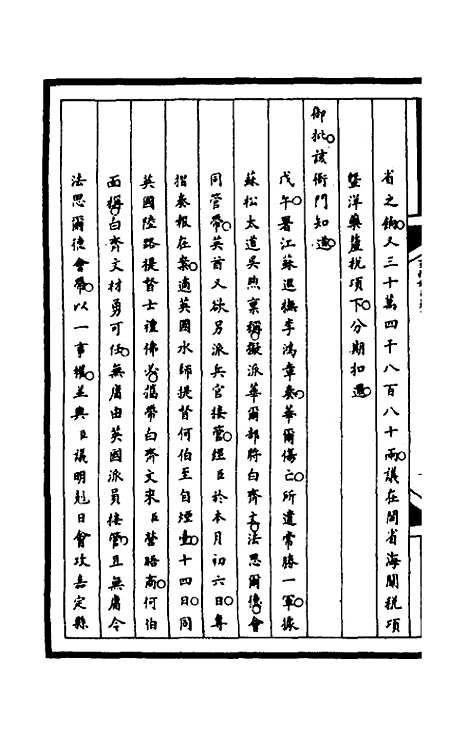 省之餉又三十萬四千八百八十兩議在閩省海關稅項
暨洋藥釐稅項下分期扣還
御批該衙門知道
戊午署江蘇巡撫李鴻章奏華爾傷亡所遺常勝一軍據
蘇松太道吳煦稟稱擬派華爾部將白齊文法思爾德會
同管帶英酋又欲另派兵官接管經臣於本月初六日專
摺奏報在案適英國水師提督何伯至自煙臺十四日同
英國陸路提督士禮佛必揭帶白齊文來臣營晤商何伯
面稱白齊文材勇可任無庸由英國派員接管且無庸令
法思爾德會帶以一事權並與臣議明剋日會攻嘉定縣